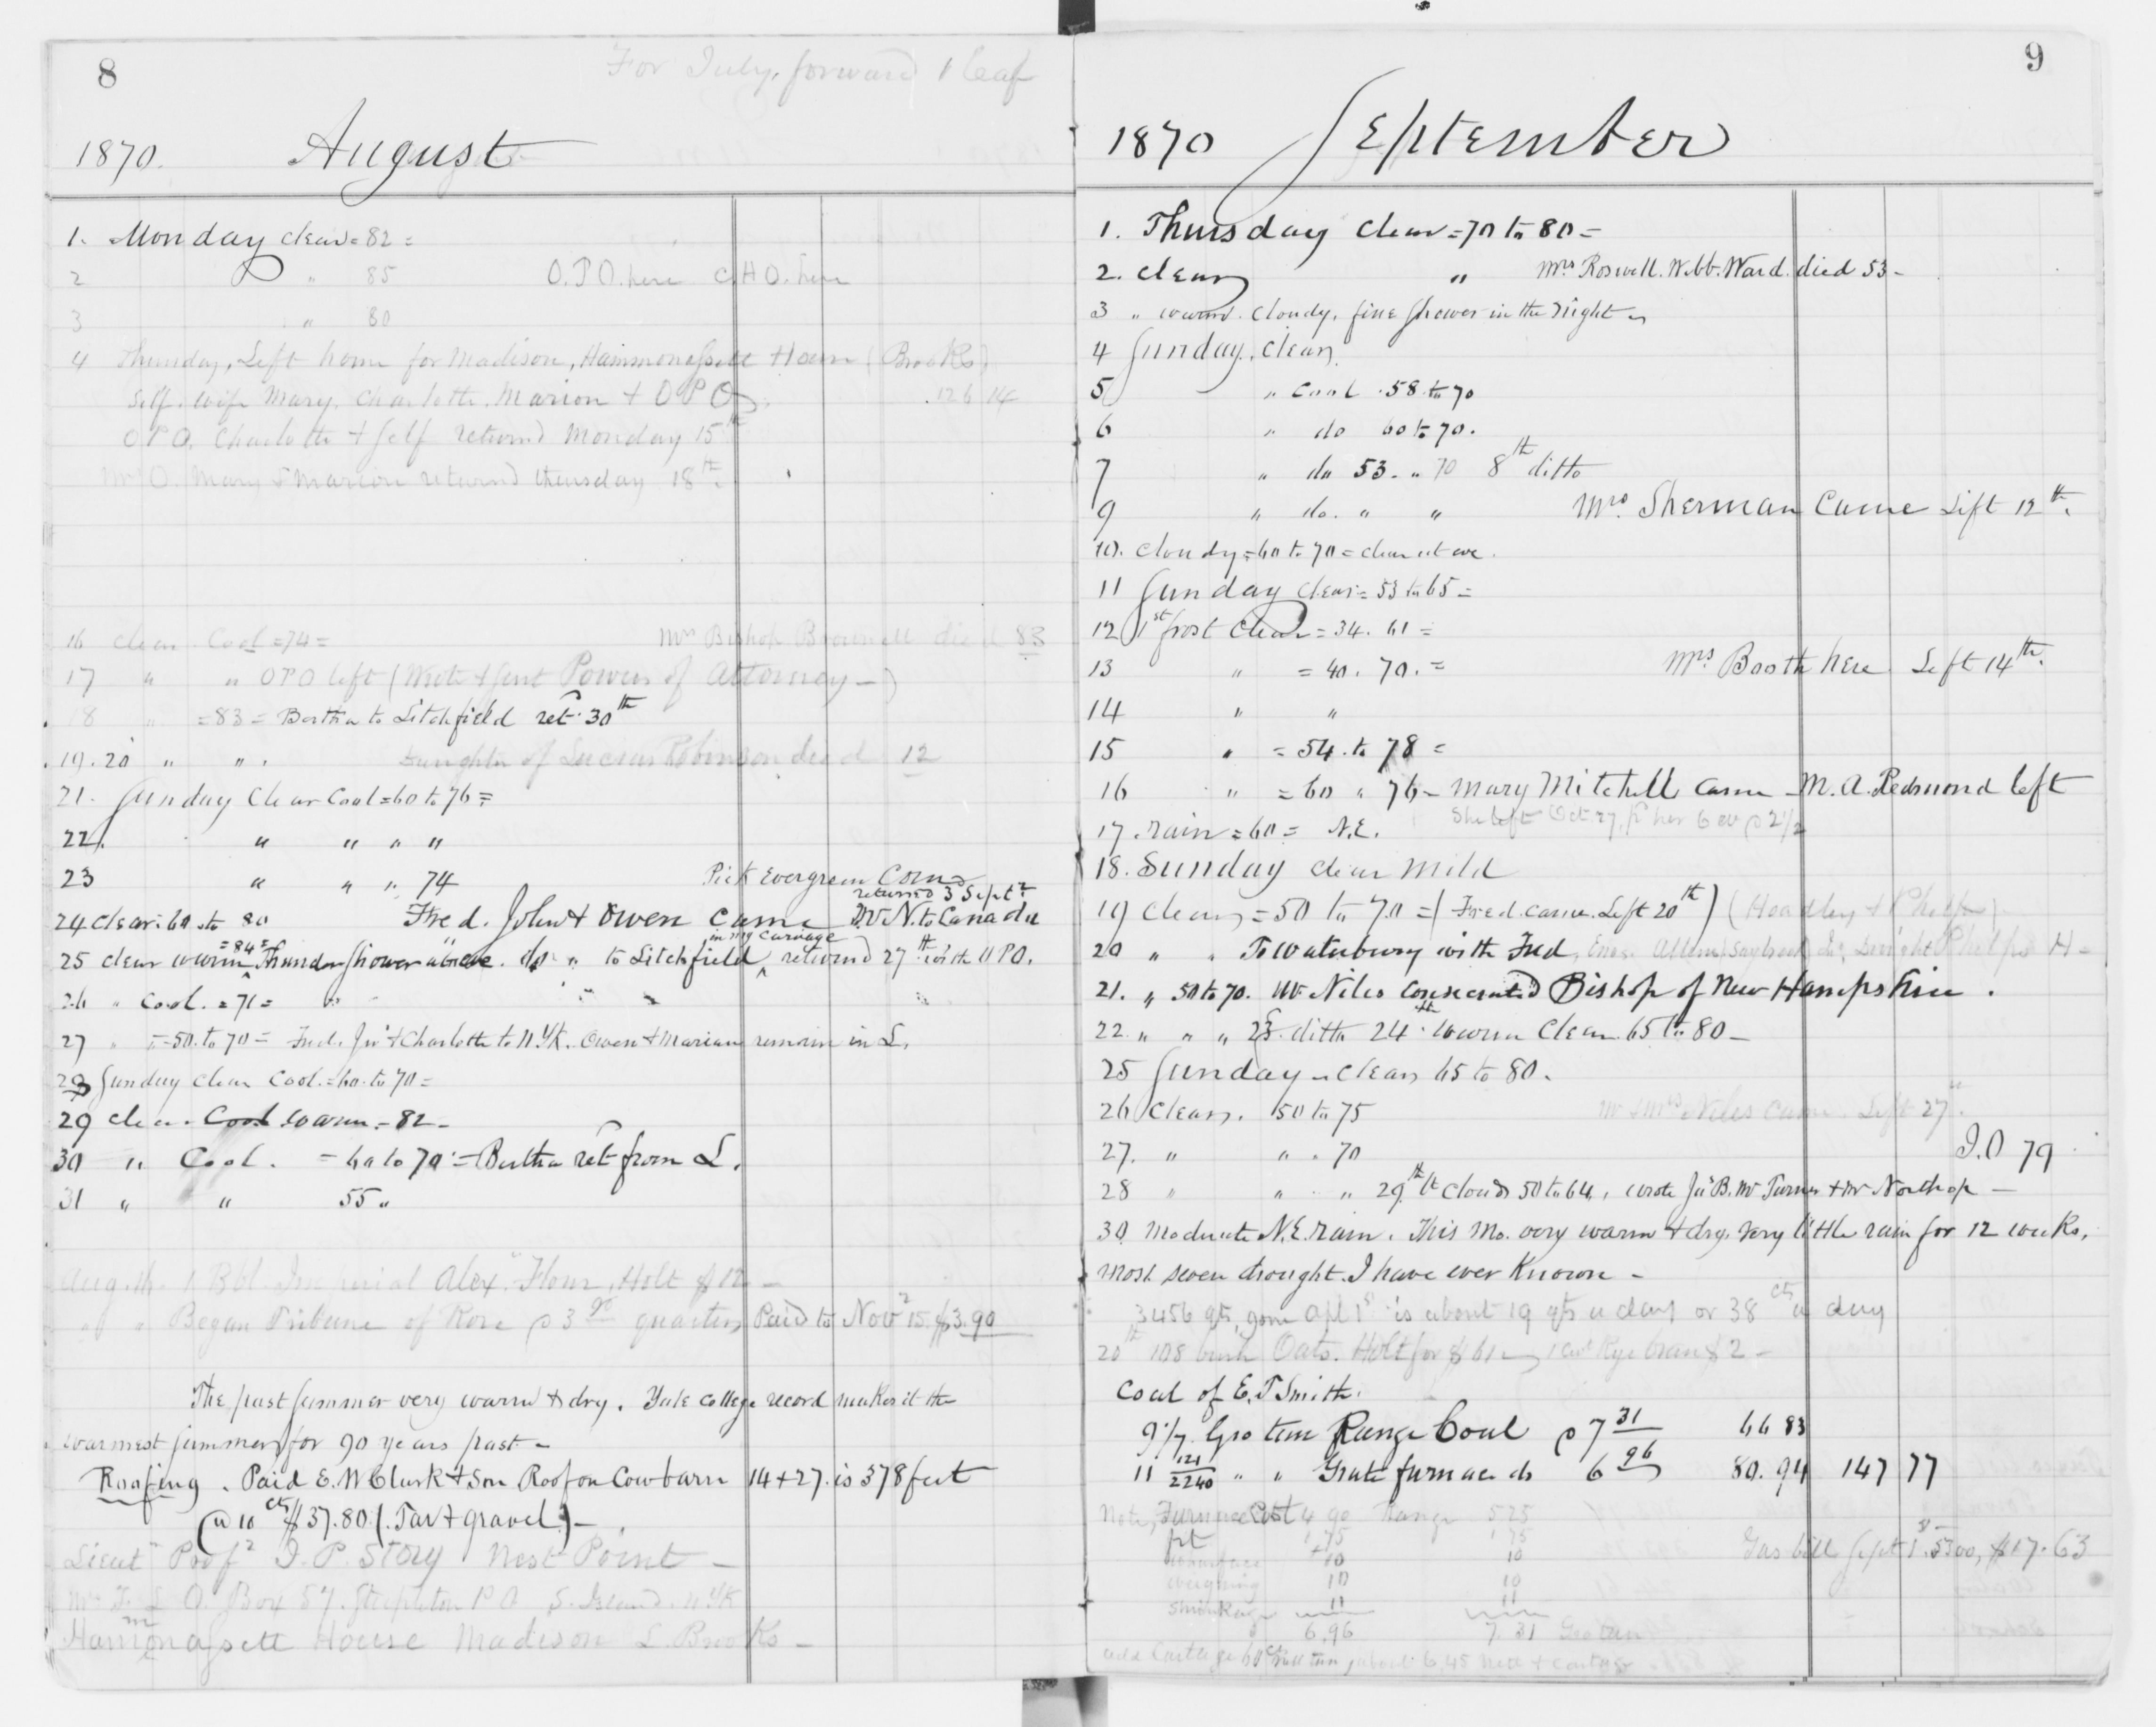 8
For July, forward 1 leaf
1870. August
1. Monday clear = 82 =
2 " 85 O.P.O. here C.H.O. here
3 " 80
4 Thursday, Left home for Madison, Hammonassett House (Brooks)
Self. wife Mary. Charlotte. Marion + O P O. 126 14
O P O. Charlotte + Self returnd Monday 15th
Mrs O. Mary + Marion returnd thursday 18th.
16 clear. Cool = 74 = Mrs Bishop Brownell died 83
17 " " O P O left (Wrote + sent Power of Attorney —)
18 " = 83 = Bertha to Litchfield ret. 30th
19. 20 " " . Daughter of Lucius Robinson died 12
21. Sunday Clear Cool = 60 to 76 =
22. " " " "
23 " " " 74 Pick Evergreen Corn
returned 3 Sept.
24 clear. 60 to 80 Fred. John + Owen came Dr N. to Canada
= 84 = in my carriage
25 clear warm Thunder shower above. do " to Litchfield ^ returnd 27th with O P O.
26 " Cool. = 71 = " " "
27 " = 50. to 70 = Fred. Jno + Charlotte to N.Yk. Owen + Marian remain in L.
28 Sunday clear Cool. = 60. to 70 =
29 clear Cool warm. = 82 -
30 " Cool. = 60 to 70 = Bertha ret from L.
31 " " 55 "
Aug. 16. 1 Bbl. Imperial Alexa Flour, Holt $12 —
" " Began Tribune of Rose @ 3 90 quarter, Paid to Nov 15. $3.90
The past summer very warm + dry. Yale College record makes it the
warmest summer for 90 years past —
Roofing. Paid E. W Clark + Son Roof on Cowbarn 14 + 27. is 378 feet
(@ 10 cts $37.80. (Tar + gravel) —
Lieut Prof J. P. Story West Point —
Mrs F. L O. Box 57. Stapleton P O S. Island. N Yk
Hammonassett House Madison L. Brooks —
9
1870 September
1. Thursday Clear = 70 to 80 =
2. Clear " Mrs Roswell. Webb. Ward. died 53 -
3 " warm. Cloudy. fine shower in the night
4 Sunday. Clear.
5 " Cool. 58. to 70
6 " do 60 to 70.
7 " do 53. " 70 8th ditto
9 " do. " " Mrs. Sherman Came Left 12th.
10. Cloudy = 60 to 70 = clear at eve.
11 Sunday clear = 53 to 65 =
12 1st frost Clear = 34. 61 =
13 " = 40. 70. = Mrs Booth here Left 14th.
14 " "
15 " = 54. to 78 =
16 " = 60 " 76 - Mary Mitchell came - M. A. Redmond left
She left Oct 27,
17. rain = 60 = N.E.
18. Sunday clear mild
19 Clear = 50 to 70 = (Fred. came. Left 20th) (Hoadley + Phelps)
20 " " To Waterbury with Fred,
21. " 50 to 70. Mr Niles consecrated Bishop of New Hampshire.
22. " " " 23. ditto 24th. warm Clear. 65 to 80 —
25 Sunday — Clear 65 to 80.
26 Clear. 50 to 75 Mr + Mrs Niles came. Left 27th.
27. " " . 70 I.O 79
28 " " " 29th lt clouds 50 to 64, wrote Jno B. Mr Turner + Mr Northop —
30 Moderate N.E. rain. This Mo. very warm + dry. very little rain for 12 weeks,
Most severe drought I have ever known —
3456 qts, from Apl 1st is about 19 qts a day or 38 cts a day
20th 108 bush Oats. Holt for $61 Rye bran $2 —
Coal of E. T Smith.
9 1/7 Gro tons Range Coal @ 7 31 66 83
11 121/2240 " " Grate furnace do 6 96 80. 94 147 77
Note, Furnace Cost 4 90 Range 5 25
frt 1 75 1 75
10 10
Gas bill Sept 1st. 5300, $17.63
weighing 10 10
shrinkage 11 11
6.96 7.31 Gro ton
add Cartage 60 cts per ton, about 6,45 nett + cartage